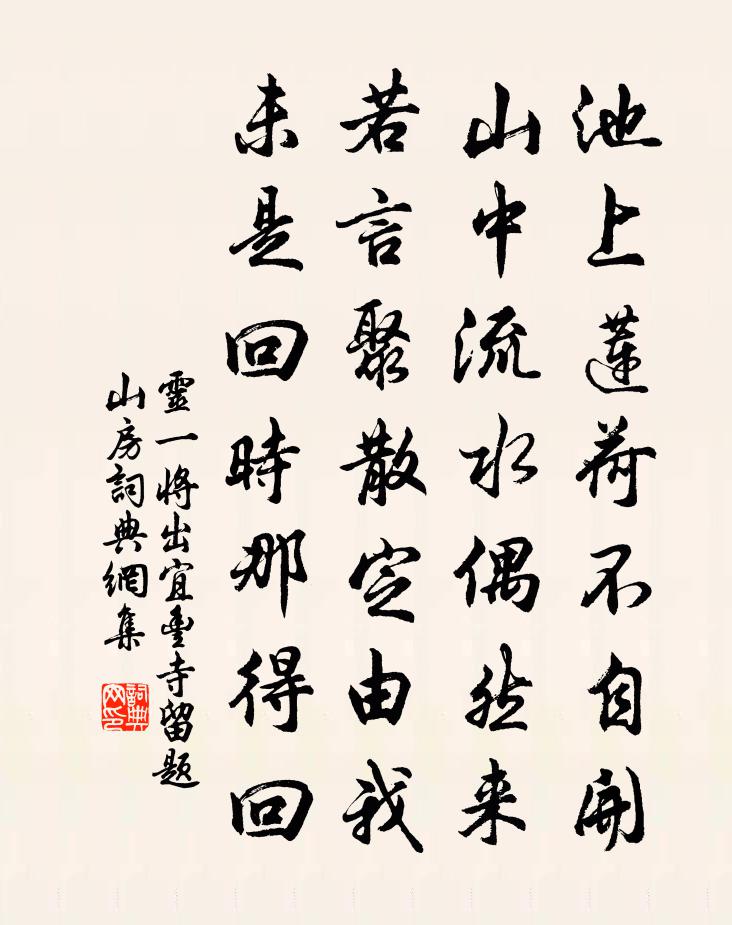 池上蓮荷不自開
山中流水偶然来
若言聚散定由我
未是回時那得回
靈一將出宜豐寺留題
山房詞典網集
詞典
网印